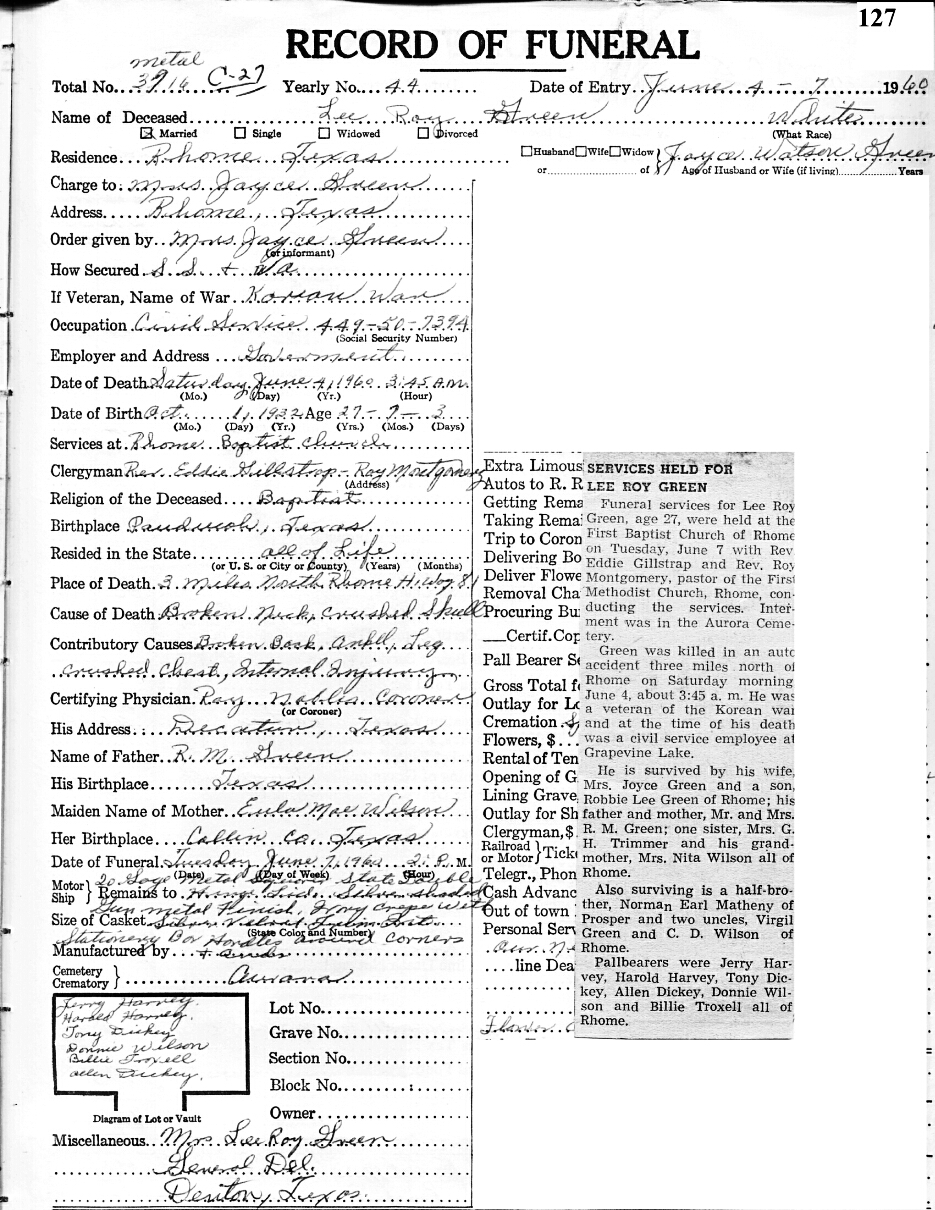 127
RECORD OF FUNERAL
metal
Total No. 3916 C-27 Yearly No. 44 Date of Entry June 4 - 7 1960
Name of Deceased Lee Roy Green White
Married Single Widowed Divorced (What Race)
Residence Rhome Texas Husband Wife Widow Joyce Watson Green
or of Age of Husband or Wife (if living) Years
Charge to: Mrs Joyce Green
Address Rhome, Texas
Order given by Mrs. Joyce Green
(or informant)
How Secured S. S. + Va
If Veteran, Name of War Korean War
Occupation Civil Service 449-50-7394
(Social Security Number)
Employer and Address Government
Date of Death Saturday June 4, 1960 3:45 a.m.
(Mo.) (Day) (Yr.) (Hour)
Date of Birth Oct. 1, 1932 Age 27 - 7 - 3
(Mo.) (Day) (Yr.) (Yrs.) (Mos.) (Days)
Services at Rhome Baptist Church
Clergyman Rev. Eddie Gillstrap - Roy Montgomery
(Address)
Religion of the Deceased Baptist
Birthplace Texas
Resided in the State all of Life
(or U. S. or City or County) (Years) (Months)
Place of Death 3 Miles North Rhome H. Way 81
Cause of Death Broken Neck, Crushed Skull
Contributory Causes Broken Back, Ankle, Leg
crushed Chest, Internal Injury
Certifying Physician Ray Nobles Coroner
(or Coroner)
His Address Decatur, Texas
Name of Father R. M. Green
His Birthplace Texas
Maiden Name of Mother Eula Mae Wilson
Her Birthplace Collin Co. Texas
Date of Funeral Tuesday June 7, 1960 2: P. M.
(Date) (Day of Week) (Hour)
20 Gage Metal State
Motor Ship Remains to Silver shaded
Gun metal Finish, Ivory Crepe with
Size of Casket Silver
(State Color and Number)
Stationery Bar Handles around corners
Manufactured by + ends
Cemetery
Crematory Aurora
Jerry Harvey
Harold Harvey
Tony Dickey
Donnie Wilson
Billie Troxell
Allen Dickey
Lot No.
Grave No.
Section No.
Block No.
Owner
Diagram of Lot or Vault
Miscellaneous Mrs Lee Roy Green
General Del.
Denton, Texas
Extra Limous
Autos to R. R
Getting Rema
Taking Remai
Trip to Coron
Delivering Bo
Deliver Flowe
Removal Cha
Procuring Bu
Certif. Cop
Pall Bearer Se
Gross Total f
Outlay for Lo
Cremation
Flowers, $
Rental of Ten
Opening of G
Lining Grave
Outlay for Sh
Clergyman, $
Railroad or Motor Ticke
Telegr., Phon
Cash Advanc
Out of town
Personal Serv
line Dea
SERVICES HELD FOR
LEE ROY GREEN
Funeral services for Lee Roy
Green, age 27, were held at the
First Baptist Church of Rhome
on Tuesday, June 7 with Rev
Eddie Gillstrap and Rev. Roy
Montgomery, pastor of the First
Methodist Church, Rhome, con-
ducting the services. Inter-
ment was in the Aurora Ceme-
tery.
Green was killed in an auto
accident three miles north of
Rhome on Saturday morning
June 4, about 3:45 a. m. He was
a veteran of the Korean war
and at the time of his death
was a civil service employee at
Grapevine Lake.
He is survived by his wife,
Mrs. Joyce Green and a son,
Robbie Lee Green of Rhome; his
father and mother, Mr. and Mrs.
R. M. Green; one sister, Mrs. G.
H. Trimmer and his grand-
mother, Mrs. Nita Wilson all of
Rhome.
Also surviving is a half-bro-
ther, Norman Earl Matheny of
Prosper and two uncles, Virgil
Green and C. D. Wilson of
Rhome.
Pallbearers were Jerry Har-
vey, Harold Harvey, Tony Dic-
key, Allen Dickey, Donnie Wil-
son and Billie Troxell all of
Rhome.